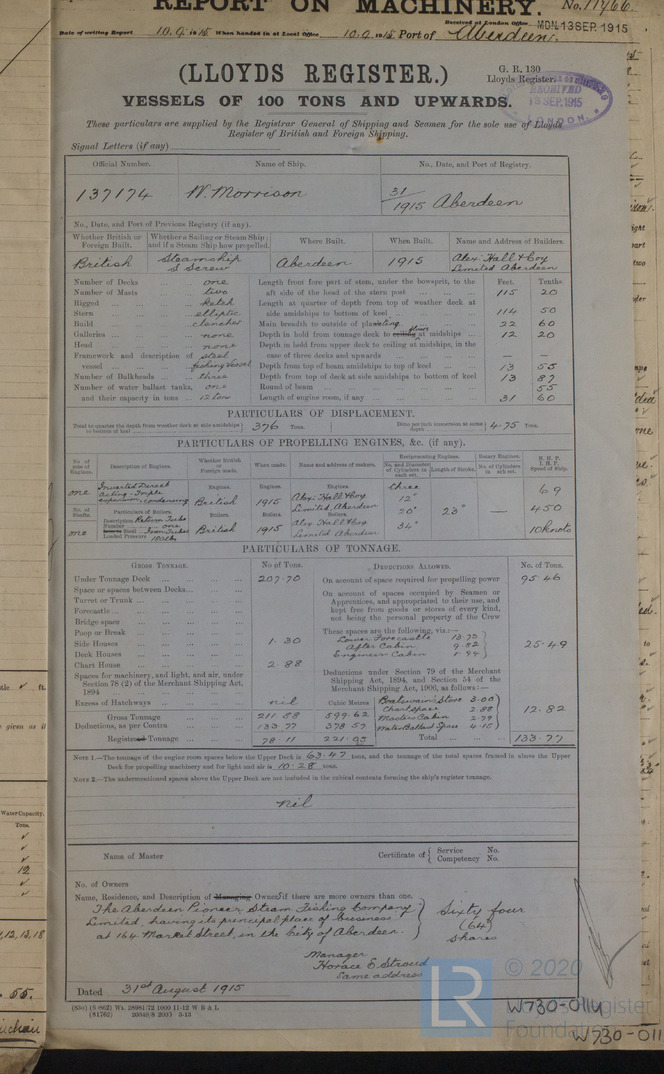 REPORT ON MACHINERY. No. 11466.
Received at London Office MON. 13 SEP. 1915
Date of writing Report 10.9.1915 When handed in at Local Office 10.9.1915 Port of Aberdeen.
G. R. 130
(LLOYDS REGISTER.) Lloyds Register.
RECEIVED
13 SEP. 1915
LONDON.
VESSELS OF 100 TONS AND UPWARDS.
These particulars are supplied by the Registrar General of Shipping and Seamen for the sole use of Lloyds
Register of British and Foreign Shipping.
Signal Letters (if any)
Official Number. Name of Ship. No., Date, and Port of Registry.
137174 W. Morrison 31/1915 Aberdeen
No., Date, and Port of Previous Registry (if any).
Whether British or Foreign Built. Whether a Sailing or Steam Ship; and if a Steam Ship how propelled. Where Built. When Built. Name and Address of Builders.
British Steamship S Screw Aberdeen 1915 Alex. Hall & Coy Limited Aberdeen
Number of Decks one Length from fore part of stem, under the bowsprit, to the Feet. Tenths
Number of Masts two aft side of the head of the stern post 115 20
Rigged ketch Length at quarter of depth from top of weather deck at
Stern elliptic side amidships to bottom of keel 114 50
Build clencher Main breadth to outside of plating 22 60
Galleries none Depth in hold from tonnage deck to ceiling floors at midships 12 20
Head none Depth in hold from upper deck to ceiling at midships, in the
Framework and description of steel case of three decks and upwards — —
vessel fishing vessel Depth from top of beam amidships to top of keel 13 55
Number of Bulkheads three Depth from top of deck at side amidships to bottom of keel 13 87
Number of water ballast tanks, one Round of beam 55
and their capacity in tons 12 ton Length of engine room, if any 31 60
PARTICULARS OF DISPLACEMENT.
Total to quarter the depth from weather deck at side amidships to bottom of keel 376 Tons. Ditto per inch immersion at same depth 4.75 Tons.
PARTICULARS OF PROPELLING ENGINES, &c. (if any).
No. of sets of Engines. Description of Engines. Whether British or Foreign made. When made. Name and address of makers. Reciprocating Engines. No. and Diameter of Cylinders in each set. Length of Stroke. Rotary Engines. No. of Cylinders in each set. N. H. P. I. H. P. Speed of Ship.
one Inverted Direct acting-Triple expansion, condensing Engines. British Engines. 1915 Engines. Alex. Hall & Coy Limited, Aberdeen three 12" 20" 34" 23" — 69 450 10 knots
No. of Shafts. Particulars of Boilers. Boilers. Boilers. Boilers.
one Description Return Tube Number one Steel Loaded Pressure 180 lbs British 1915 Alex Hall & Coy Limited Aberdeen
PARTICULARS OF TONNAGE.
GROSS TONNAGE. No. of Tons. DEDUCTIONS ALLOWED. No. of Tons.
Under Tonnage Deck 207.70 On account of space required for propelling power 95.46
Space or spaces between Decks On account of spaces occupied by Seamen or
Turret or Trunk Apprentices, and appropriated to their use, and
Forecastle kept free from goods or stores of every kind,
Bridge space not being the personal property of the Crew
Poop or Break These spaces are the following, viz.:—
Side Houses 1.30 Lower Forecastle 13.73
Deck Houses After Cabin 9.82 25.49
Chart House 2.88 Engineer Cabin 1.94
Spaces for machinery, and light, and air, under Section 78 (2) of the Merchant Shipping Act, 1894
Deductions under Section 79 of the Merchant Shipping Act, 1894, and Section 54 of the Merchant Shipping Act, 1906, as follows:—
Excess of Hatchways nil Cubic Metres Boatswain's Store 3.00
Gross Tonnage 211.88 599.62 Chartspace 2.88 12.82
Deductions, as per Contra 133.77 378.57 Masters Cabin 2.79
Water Ballast Space 4.15
Registered Tonnage 78.11 221.05 Total 133.77
NOTE 1.—The tonnage of the engine room spaces below the Upper Deck is 63.47 tons, and the tonnage of the total spaces framed in above the Upper
Deck for propelling machinery and for light and air is 10.28 tons.
NOTE 2.—The undermentioned spaces above the Upper Deck are not included in the cubical contents forming the ship's register tonnage.
nil
Name of Master Certificate of { Service No. Competency No.
No. of Owners
Name, Residence, and Description of Managing Owner, if there are more owners than one.
The Aberdeen Pioneer Steam Fishing Company
Limited, having its principal place of business
at 164 Market Street, in the City of Aberdeen. } Sixty four (64) shares
Manager
Horace E Stroud
same address
Dated 31st August 1915
(83o) (8-862) Wt. 28981/72 1000 11-12 W B & L
(81762) 20349/8 2000 3-13
LR © 2020
Lloyd's Register
Foundation
W730-0114
W730-011
Water Capacity.
Tons.